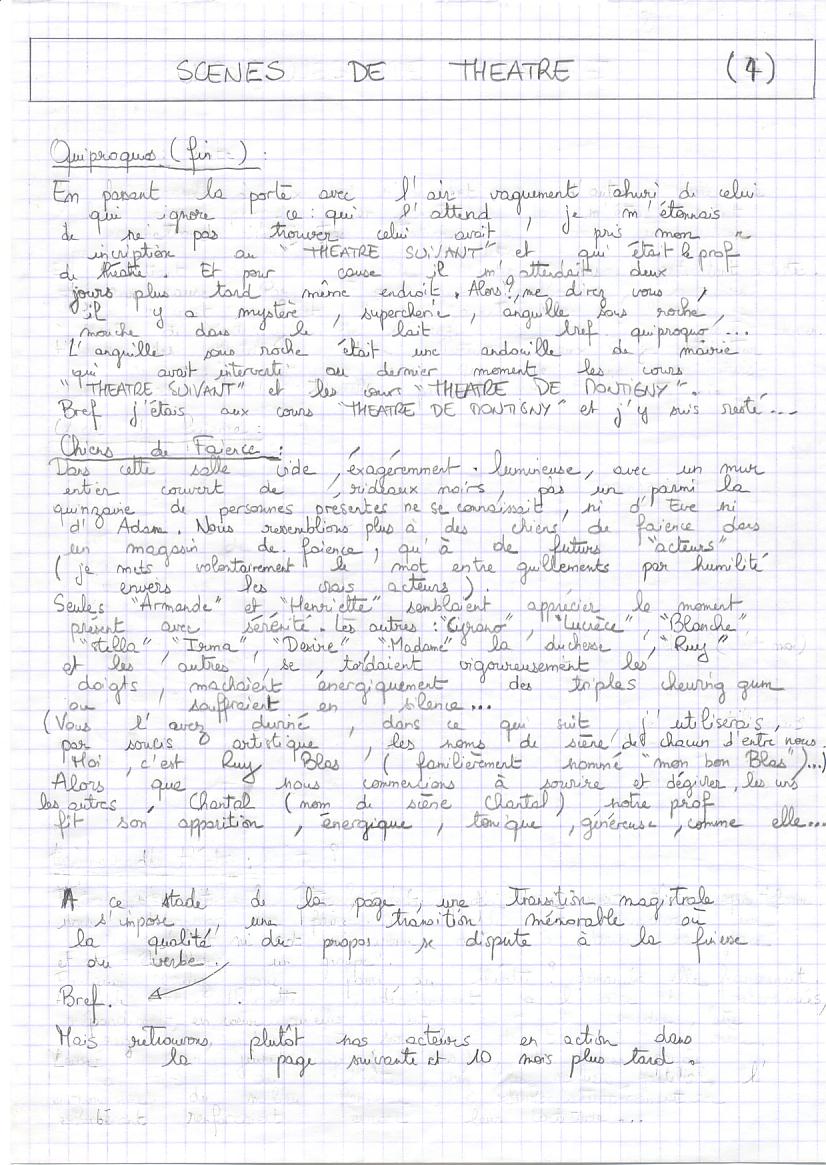 SCENES DE THEATRE (4)
Quiproquos (fin -) :
En passant la porte avec l'air vaguement ahuri de celui
qui ignore ce qui l'attend, je m'étonnais
de ne pas trouver celui avait pris mon
incription au "THEATRE SUIVANT" et qui était le prof
de théatre. Et pour cause il m'attendait deux
jours plus tard même endroit. Alors?, me direz vous,
il y a mystère, supercherie, anguille sous roche,
mouche dans le lait bref quiproquo...
L'anguille sous roche était une andouille de mairie
qui avait interverti au dernier moment les cours
"THEATRE SUIVANT" et les cours "THEATRE DE MONTIGNY".
Bref j'étais aux cours "THEATRE DE MONTIGNY" et j'y suis resté...
Chiens de Faience :
Dans cette salle vide, éxagéremment lumineuse, avec un mur
entier couvert de rideaux noirs, pas un parmi la
quinzaine de personnes présentes ne se connaissait, ni d'Eve ni
d'Adam. Nous resemblions plus à des chiens de faience dans
un magasin de faience, qu'à de futurs "acteurs"
(je mets volontairement le mot entre guillements par humilité
envers les vrais acteurs).
Seules "Armande" et "Henriette" semblaient apprécier le moment
présent avec sérénité. Les autres : "Cyrano", "Lucrèce", "Blanche"
"Stella", "Irma", "Desire", "Madame" la duchesse, "Ruy"
et les autres, se tordaient vigoureusement les
doigts, machaient énergiquement des triples cheuring gum
ou souffraient en silence...
(Vous l'avez deviné, dans ce qui suit j'utiliserais,
par soucis artistique, les noms de siène de chacun d'entre nous.
Moi, c'est Ruy Blas (familièrement nommé "mon bon Blas")...)
Alors que nous commencions à sourire et dégivrer, les uns
les autres, Chantal (nom de siène Chantal), notre prof
fit son apparition, énergique, tonique, généreuse, comme elle...
A ce stade de la page, une transition magistrale
s'impose, une transition mémorable où
la qualité du propos se dispute à la finesse
du verbe.
Bref.
Mais retrouvons plutôt nos acteurs en action dans
la page suivante et 10 mois plus tard.